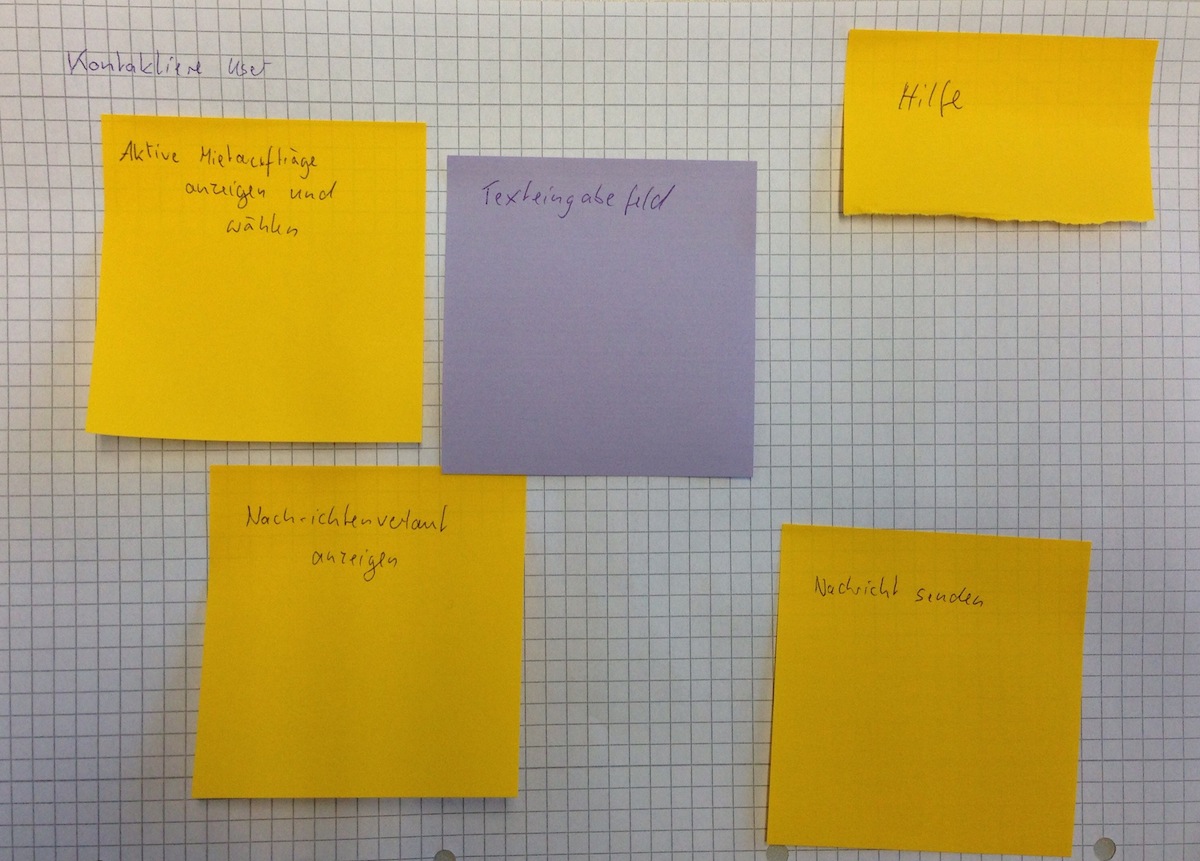 Kontaktiere User
Hilfe
Aktive Mietaufträge
anzeigen und
wählen
Texteingabefeld
Nachrichtenverlauf
anzeigen
Nachricht senden